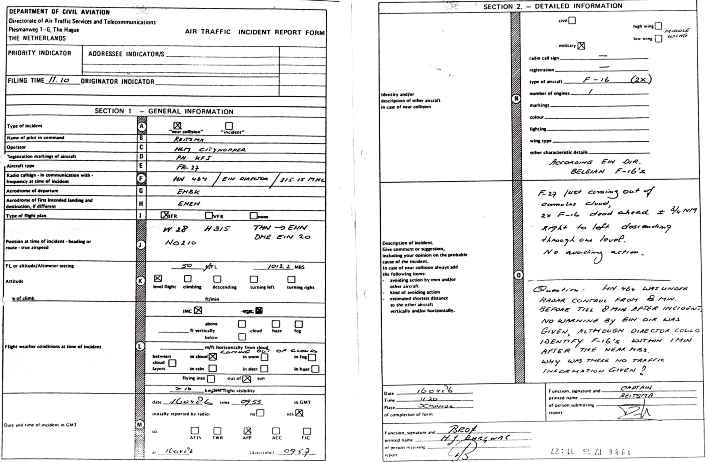 DEPARTMENT OF CIVIL AVIATION
Directorate of Air Traffic Services and Telecommunications
Plesmanweg 1-6, The Hague
THE NETHERLANDS
AIR TRAFFIC INCIDENT REPORT FORM
PRIORITY INDICATOR
ADDRESSEE INDICATOR/S
FILING TIME 11.10 ORIGINATOR INDICATOR
SECTION 1 – GENERAL INFORMATION
Type of incident A "near collision" "incident"
Name of pilot in command B REITSMA
Operator C NLM CITYHOPPER
Registration markings of aircraft D PH KFJ
Aircraft type E FK-27
Radio callsign - in communication with - frequency at time of incident F HN 464 / EHN DIRECTOR
Aerodrome of departure G
Aerodrome of first intended landing and destination, if different H EHEH
Type of flight plan I IFR VFR none
Position at time of incident - heading or route - true airspeed J W 28 H 315
N0210 DME EIN 20
FL or altitude/Altimeter setting 50 1013.2 MBS
Attitude K level flight climbing descending turning left turning right
% of climb ft/min
IMC
Flight weather conditions at time of incident L
above
ft vertically cloud haze fog
below
m/ft horizontally from cloud
COMING OUT OF CLOUDS
between in cloud in snow in fog
cloud
layers in rain in haze
flying into out of sun
flight visibility
Date and time of incident in GMT M
date 160486 time 0955 in GMT
initially reported by radio: no yes
to ATIS TWR APP ACC FIC
160486 0957
SECTION 2. – DETAILED INFORMATION
Identity and/or
description of other aircraft
in case of near collision
N
civil
military
high wing
low wing
MIDDLE WING
radio call sign —
registration —
type of aircraft F-16 (2x)
number of engines 1
markings
colour
lighting
wing type
other characteristic details
ACCORDING EIN DIR.
BELGIAN F-16's
Description of incident.
Give comment or suggestion,
including your opinion on the probable
cause of the incident.
In case of near collision always add
the following items:
- avoiding action by own and/or
other aircraft
- kind of avoiding action
- estimated shortest distance
to the other aircraft
vertically and/or horizontally.
O
F-27 just coming out of
cumulus cloud,
2x F-16 dead ahead ± 3/4 NM
right to left descending
through our level.
No avoiding action.
Question: HN 464 WAS UNDER
RADAR CONTROL FROM 8 MIN.
BEFORE TILL 8 MIN AFTER INCIDENT.
NO WARNING BY EIN DIR WAS
GIVEN, ALTHOUGH DIRECTOR COULD
IDENTIFY F-16's WITHIN 1 MIN
AFTER THE NEAR MISS.
WHY WAS THERE NO TRAFFIC
INFORMATION GIVEN?
Date 160486
Time 1120
Place
of completion of form
Function, signature and printed name
of person submitting report
CAPTAIN
REITSMA
Function, signature and
printed name
of person receiving
report